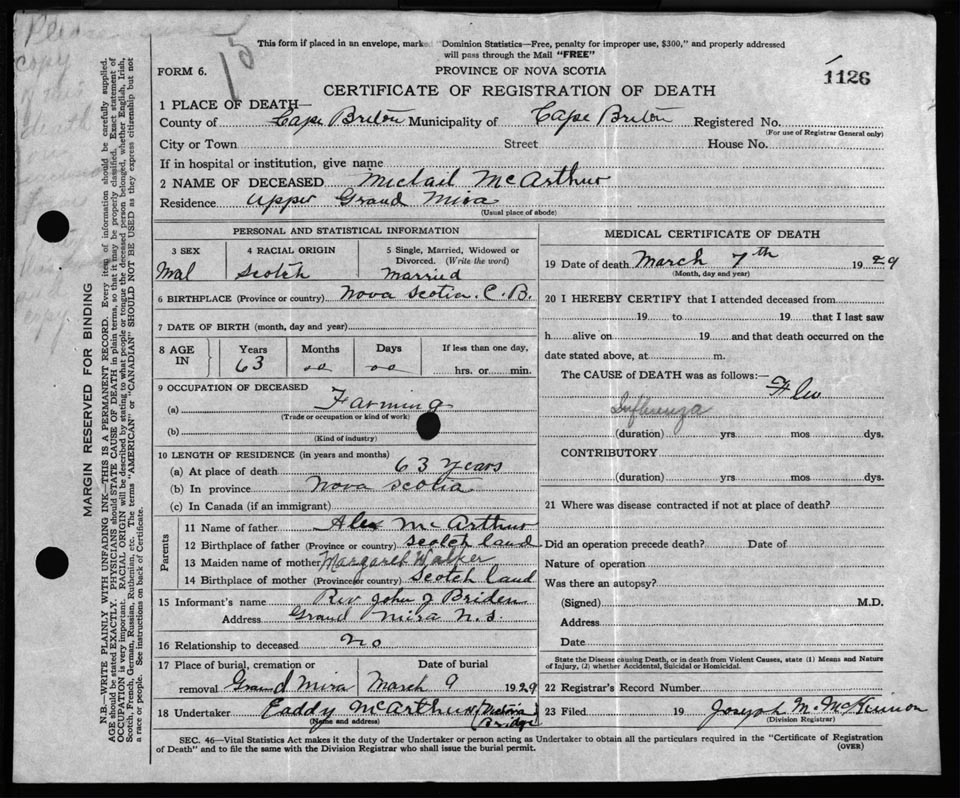 This form if placed in an envelope, marked "Dominion Statistics—Free, penalty for improper use, $300," and properly addressed
will pass through the Mail "FREE"
15
FORM 6.
PROVINCE OF NOVA SCOTIA
1126
CERTIFICATE OF REGISTRATION OF DEATH
1 PLACE OF DEATH—
County of Cape Breton Municipality of Cape Breton Registered No.
(For use of Registrar General only)
City or Town Street House No.
If in hospital or institution, give name
2 NAME OF DECEASED Michail McArthur
Residence Upper Grand Mira
(Usual place of abode)
PERSONAL AND STATISTICAL INFORMATION
3 SEX 4 RACIAL ORIGIN 5 Single, Married, Widowed or
Divorced. (Write the word)
Mal Scotch Married
6 BIRTHPLACE (Province or country) Nova Scotia. C.B.
7 DATE OF BIRTH (month, day and year)
8 AGE IN Years Months Days If less than one day,
63 oo oo hrs. or min.
9 OCCUPATION OF DECEASED
(a) Farming
(Trade or occupation or kind of work)
(b)
(Kind of industry)
10 LENGTH OF RESIDENCE (in years and months)
(a) At place of death 63 years
(b) In province Nova Scotia
(c) In Canada (if an immigrant)
Parents
11 Name of father Alex McArthur
12 Birthplace of father (Province or country) Scotch land
13 Maiden name of mother Margaret Walker
14 Birthplace of mother (Province or country) Scotch land
15 Informant's name Rev John J Briden
Address Grand Mira N.S.
16 Relationship to deceased No
17 Place of burial, cremation or Date of burial
removal Grand Mira March 9 1929
18 Undertaker Paddy McArthur (Victoria
(Name and address) Bridge)
MEDICAL CERTIFICATE OF DEATH
19 Date of death March 7th 1929
(Month, day and year)
20 I HEREBY CERTIFY that I attended deceased from
19 to 19 that I last saw
h alive on 19 and that death occurred on the
date stated above, at m.
The CAUSE of DEATH was as follows:—
Flu
Influenza
(duration) yrs. mos. dys.
CONTRIBUTORY
(duration) yrs. mos. dys.
21 Where was disease contracted if not at place of death?
Did an operation precede death? Date of
Nature of operation
Was there an autopsy?
(Signed) M.D.
Address
Date
State the Disease causing Death, or in death from Violent Causes, state (1) Means and Nature
of Injury, (2) whether Accidental, Suicidal or Homicidal.
22 Registrar's Record Number
23 Filed 19 Joseph M. McKinnon
(Division Registrar)
SEC. 46—Vital Statistics Act makes it the duty of the Undertaker or person acting as Undertaker to obtain all the particulars required in the "Certificate of Registration
of Death" and to file the same with the Division Registrar who shall issue the burial permit.
(OVER)
MARGIN RESERVED FOR BINDING
N.B.—WRITE PLAINLY WITH UNFADING INK—THIS IS A PERMANENT RECORD. Every item of information should be carefully supplied.
AGE should be stated EXACTLY. PHYSICIANS should STATE CAUSE OF DEATH in plain terms, so that it may be properly classified. Exact statement of
OCCUPATION is very important. RACIAL ORIGIN will be described by stating to what people or tongue the deceased person belonged, whether English, Irish,
Scotch, French, German, Russian, Ruthenian, etc. The terms "AMERICAN" or "CANADIAN" SHOULD NOT BE USED as they express citizenship but not
a race or people. See instructions on back of Certificate.
Please
copy
this
death